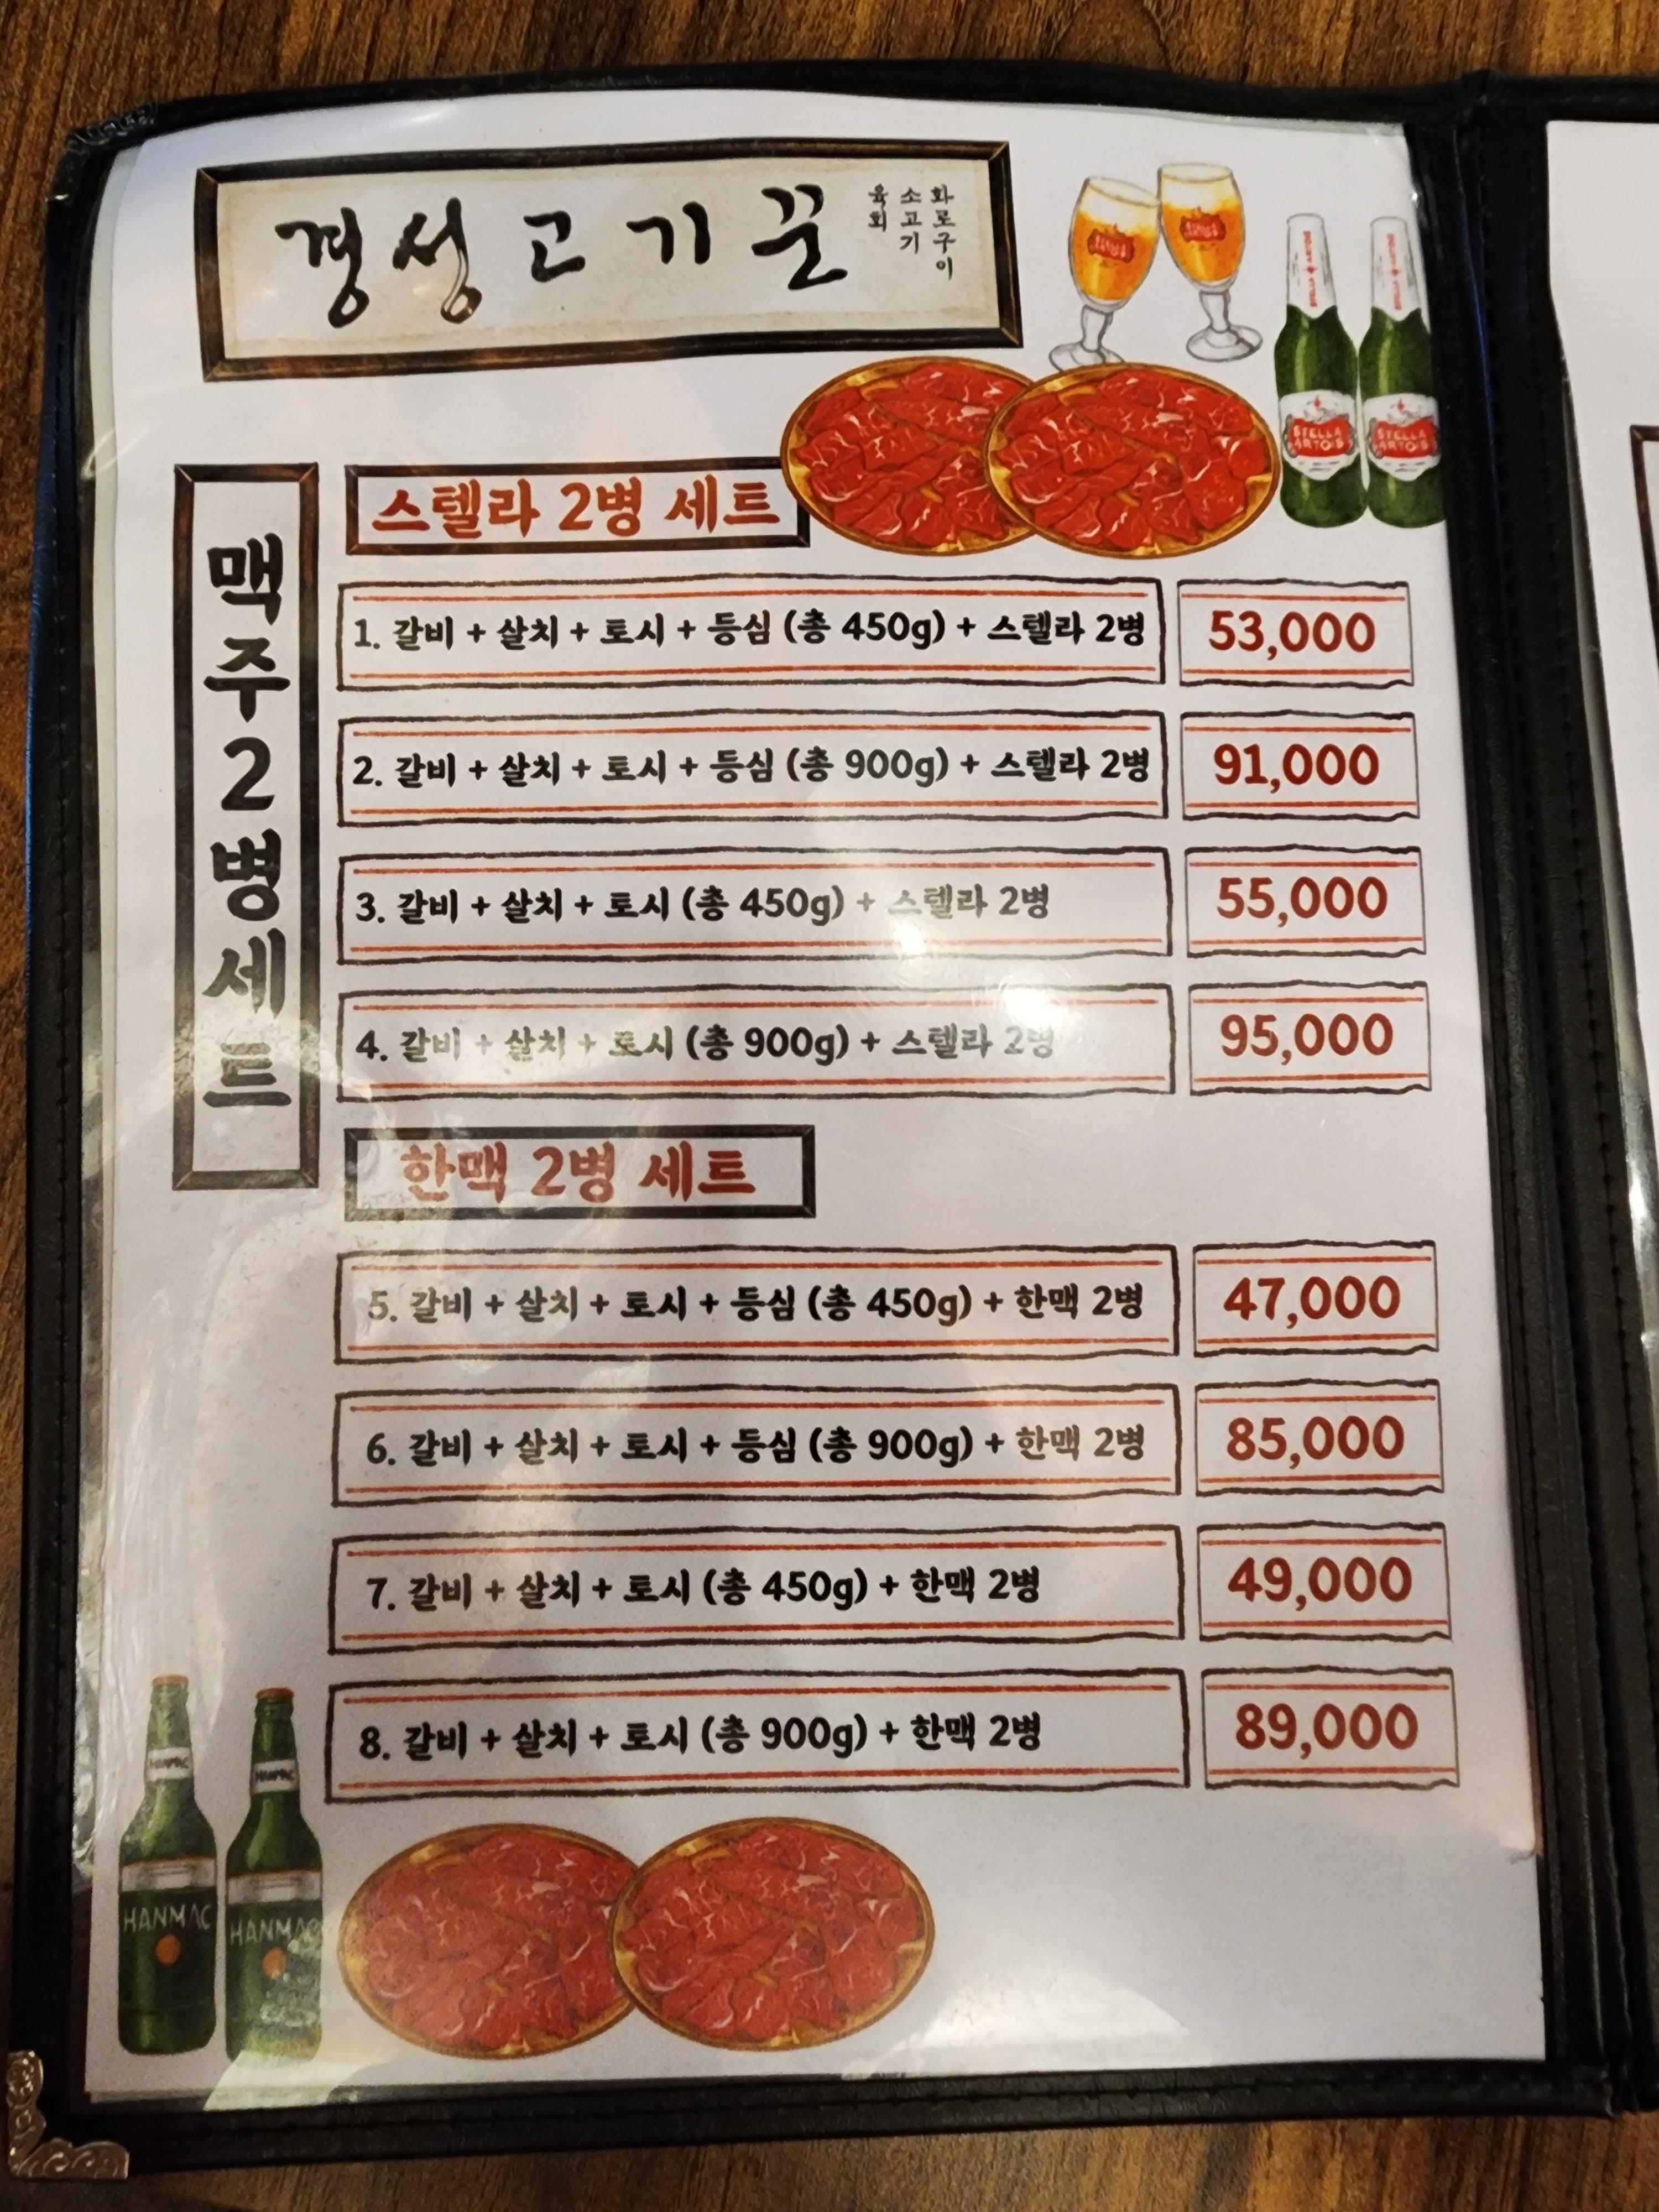 경성고기꾼
화로구이
소고기
육회
STELLA ARTOIS
STELLA ARTOIS
STELLA
ARTOIS
STELLA
ARTOIS
맥주2병세트
스텔라 2병 세트
1. 갈비 + 살치 + 토시 + 등심 (총 450g) + 스텔라 2병 53,000
2. 갈비 + 살치 + 토시 + 등심 (총 900g) + 스텔라 2병 91,000
3. 갈비 + 살치 + 토시 (총 450g) + 스텔라 2병 55,000
4. 갈비 + 살치 + 토시 (총 900g) + 스텔라 2병 95,000
한맥 2병 세트
5. 갈비 + 살치 + 토시 + 등심 (총 450g) + 한맥 2병 47,000
6. 갈비 + 살치 + 토시 + 등심 (총 900g) + 한맥 2병 85,000
7. 갈비 + 살치 + 토시 (총 450g) + 한맥 2병 49,000
8. 갈비 + 살치 + 토시 (총 900g) + 한맥 2병 89,000
HANMAC
HANMAC
HANMAC
HANMAC